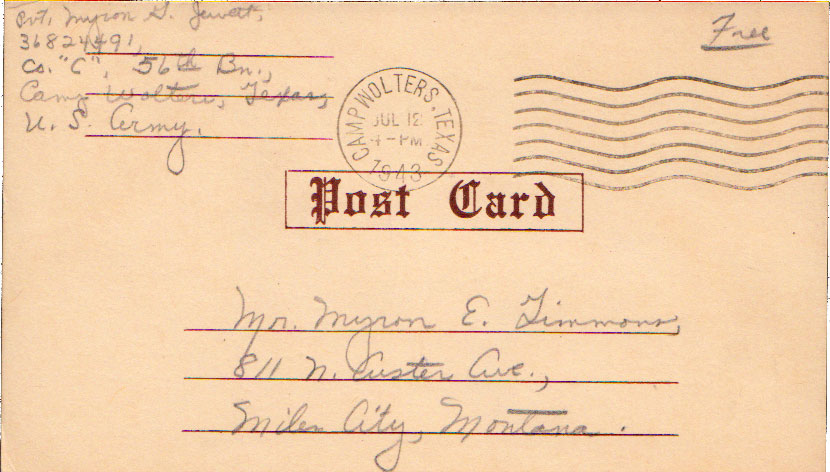 Pvt. Myron G. Jewett,
36824491,
Co. "C", 56th Bn.,
Camp Wolters, Texas,
U. S. Army.
Free
CAMP WOLTERS, TEXAS
JUL 12
4-PM
1943
Post Card
Mr. Myron E. Timmons,
811 N. Custer Ave.,
Miles City, Montana.